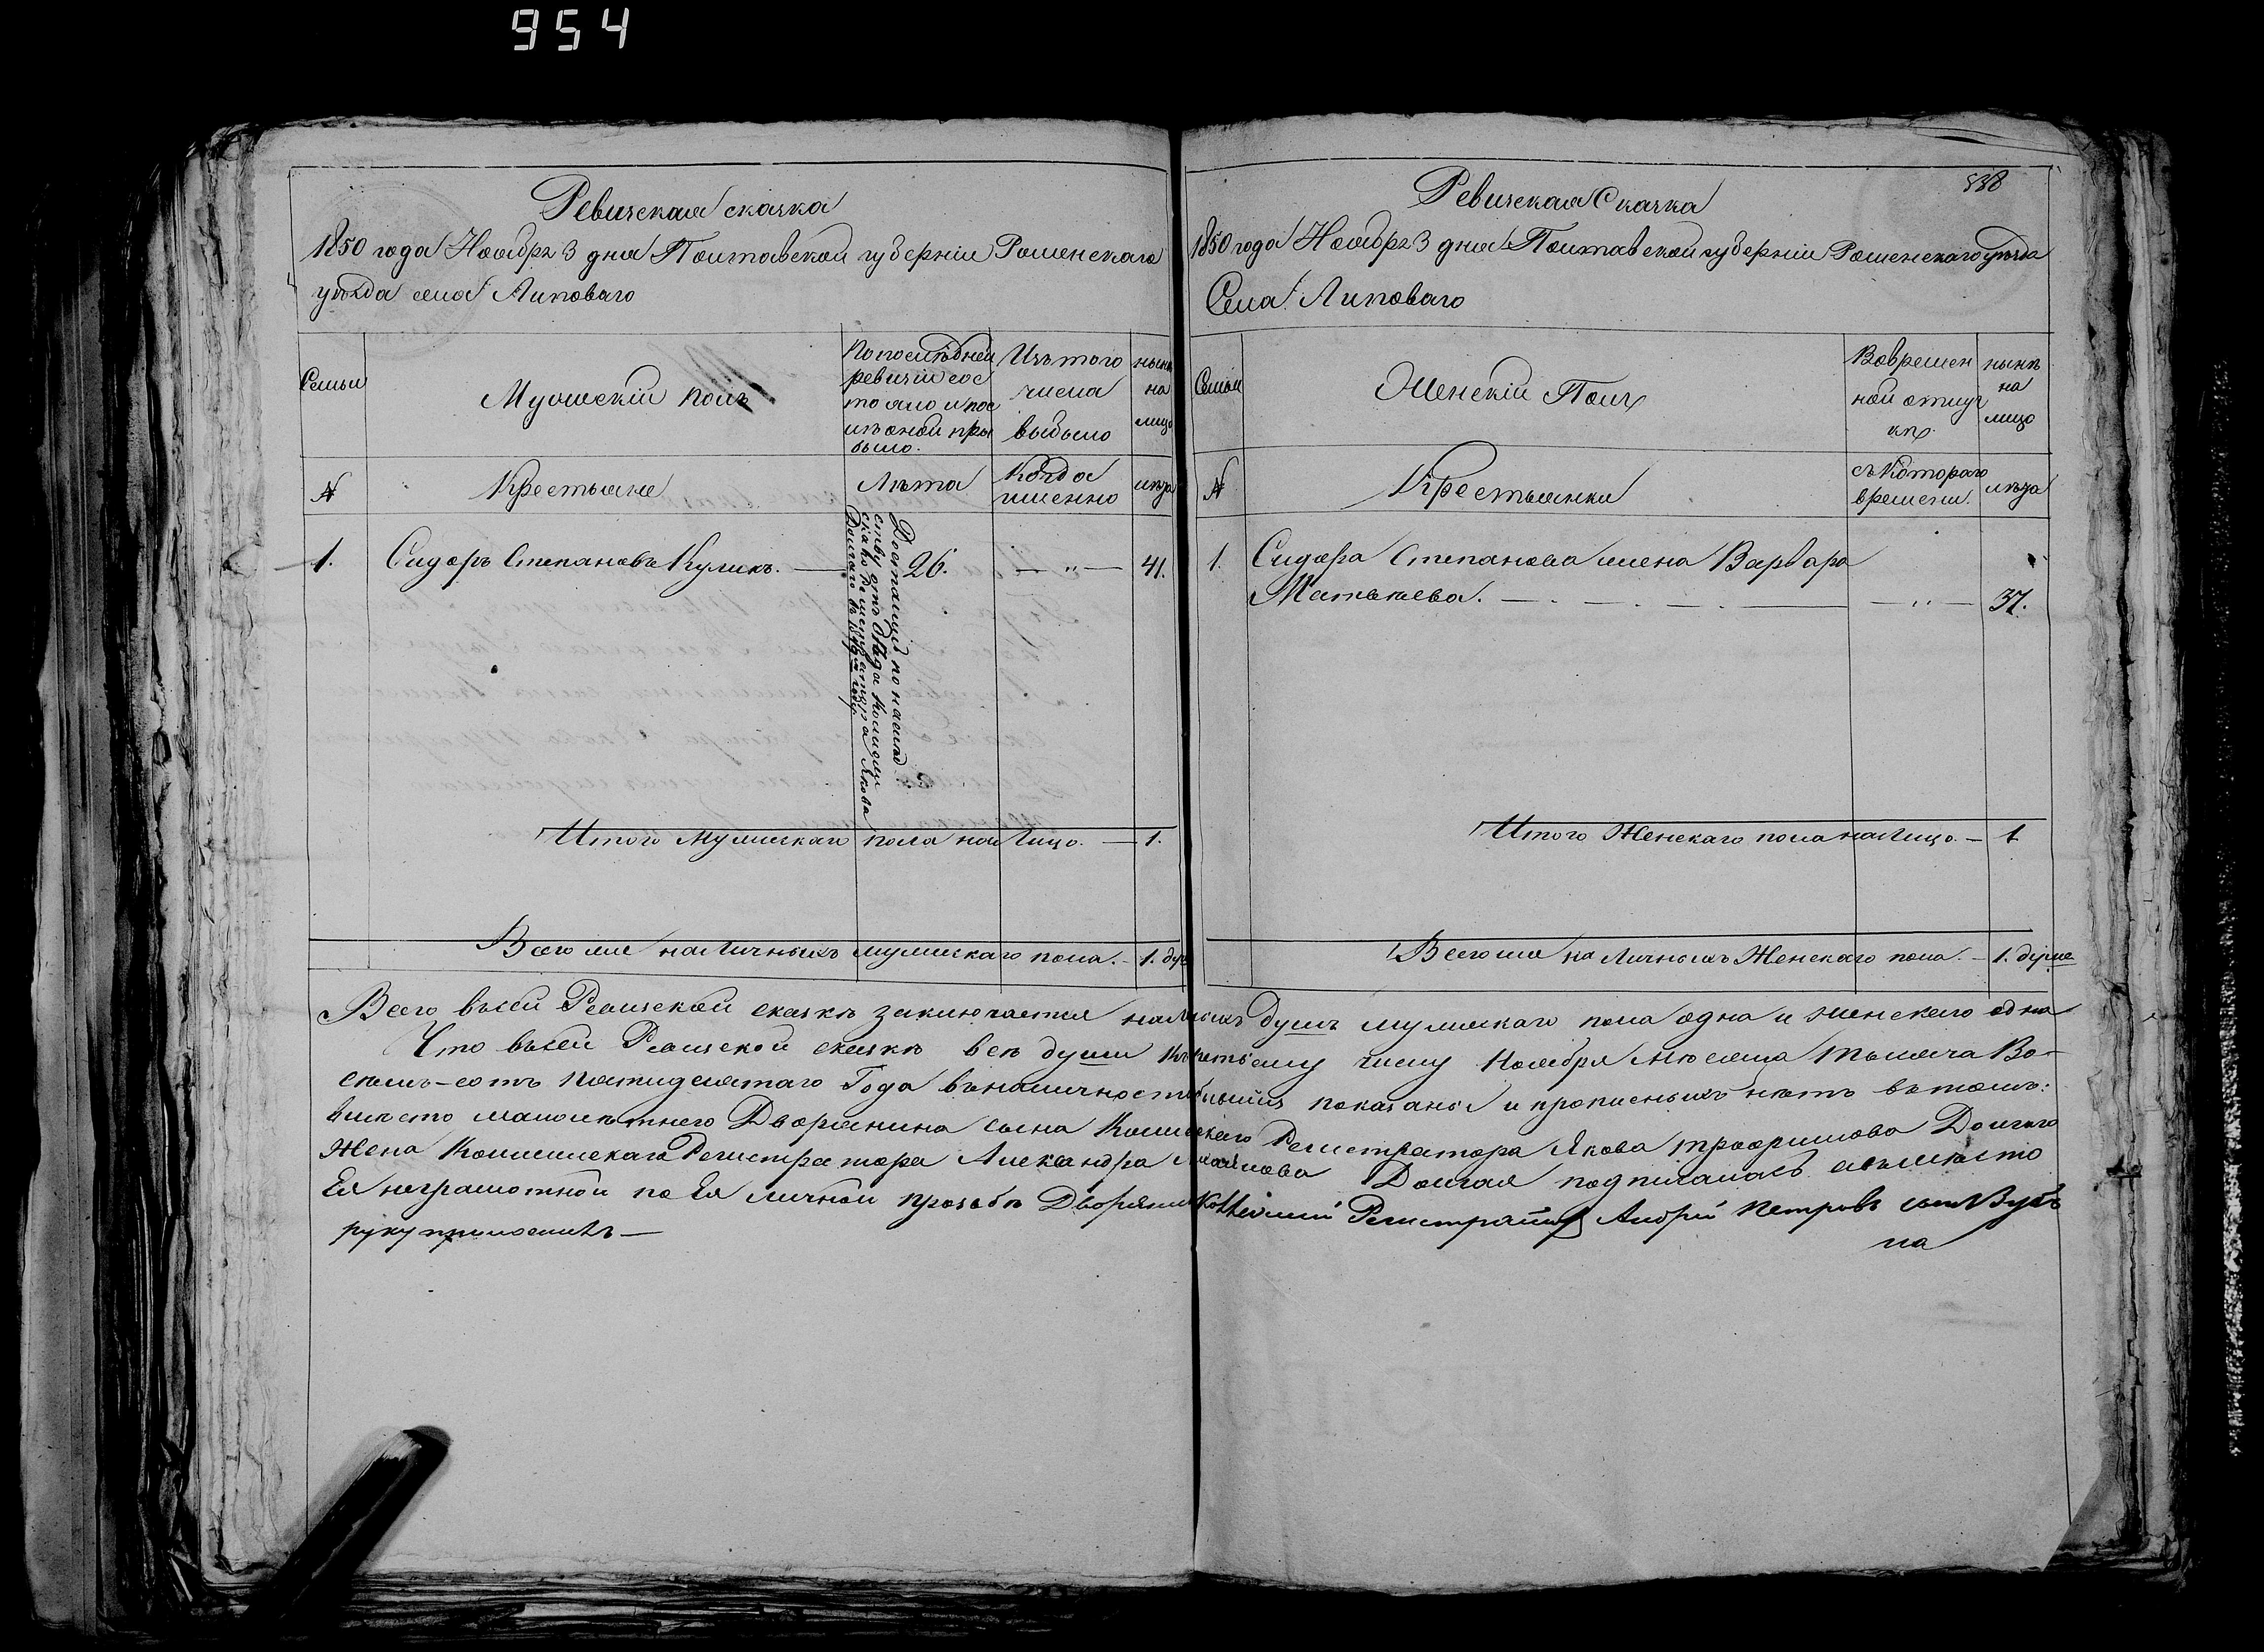 954
Ревизская сказка
1850 года Ноября 3 дня Полтавской губерніи Роменскаго
уѣзда села Липоваго
Семьи
Мужескій полъ
По последней
ревизіи сос
тояло и пос
лѣ оной при
было.
Изъ того
числа
выбыло
нынѣ
на
лицо
№
Крестьяне
Лѣта
Когда
именно
лѣта
1. Сидоръ Степановъ Куликъ. — 26. — „ — 41.
Достался по наслѣд
ству отъ отца
Долгаго въ
Итого Мужескаго пола на Лицо. — 1.
Всего же наличныхъ мужескаго пола. — 1. душ
838
Ревизская Сказка
1850 года Ноября 3 дня Полтавской губерніи Роменскаго уѣзда
Села Липоваго
Семьи
Женскій Полъ
Вовремен
ной отлуч
кѣ
нынѣ
на
лицо
№
Крестьянки
съ котораго
времени.
лѣта
1. Сидора Степанова жена Варвара
Матвѣева. — — — — „ — 37.
Итого Женскаго пола на Лицо. — 1
Всего же на Личныхъ Женскаго пола. — 1. душа
Всего въ сей Ревизской сказкѣ заключается налич ныхъ душъ мужескаго пола одна и женскаго одна
Что въ сей Ревизской сказкѣ всѣ души къ третьему числу Ноября мѣсяца тысяча Во-
семь-сотъ пятидесятаго Года въ наличности бывшія показаны и прописныхъ нѣтъ въ томъ:
вмѣсто малолѣтнего Дворянина сына Колежскаго Регистратора Якова Трофимова Долгаго
Жена Колежскаго Регистратора Александра Долгая подписалась а вмѣсто
Ея неграмотной по Ея личной прозьбѣ Дворянинъ Регистраторъ Андрей Петровъ сынъ
руку приложилъ —